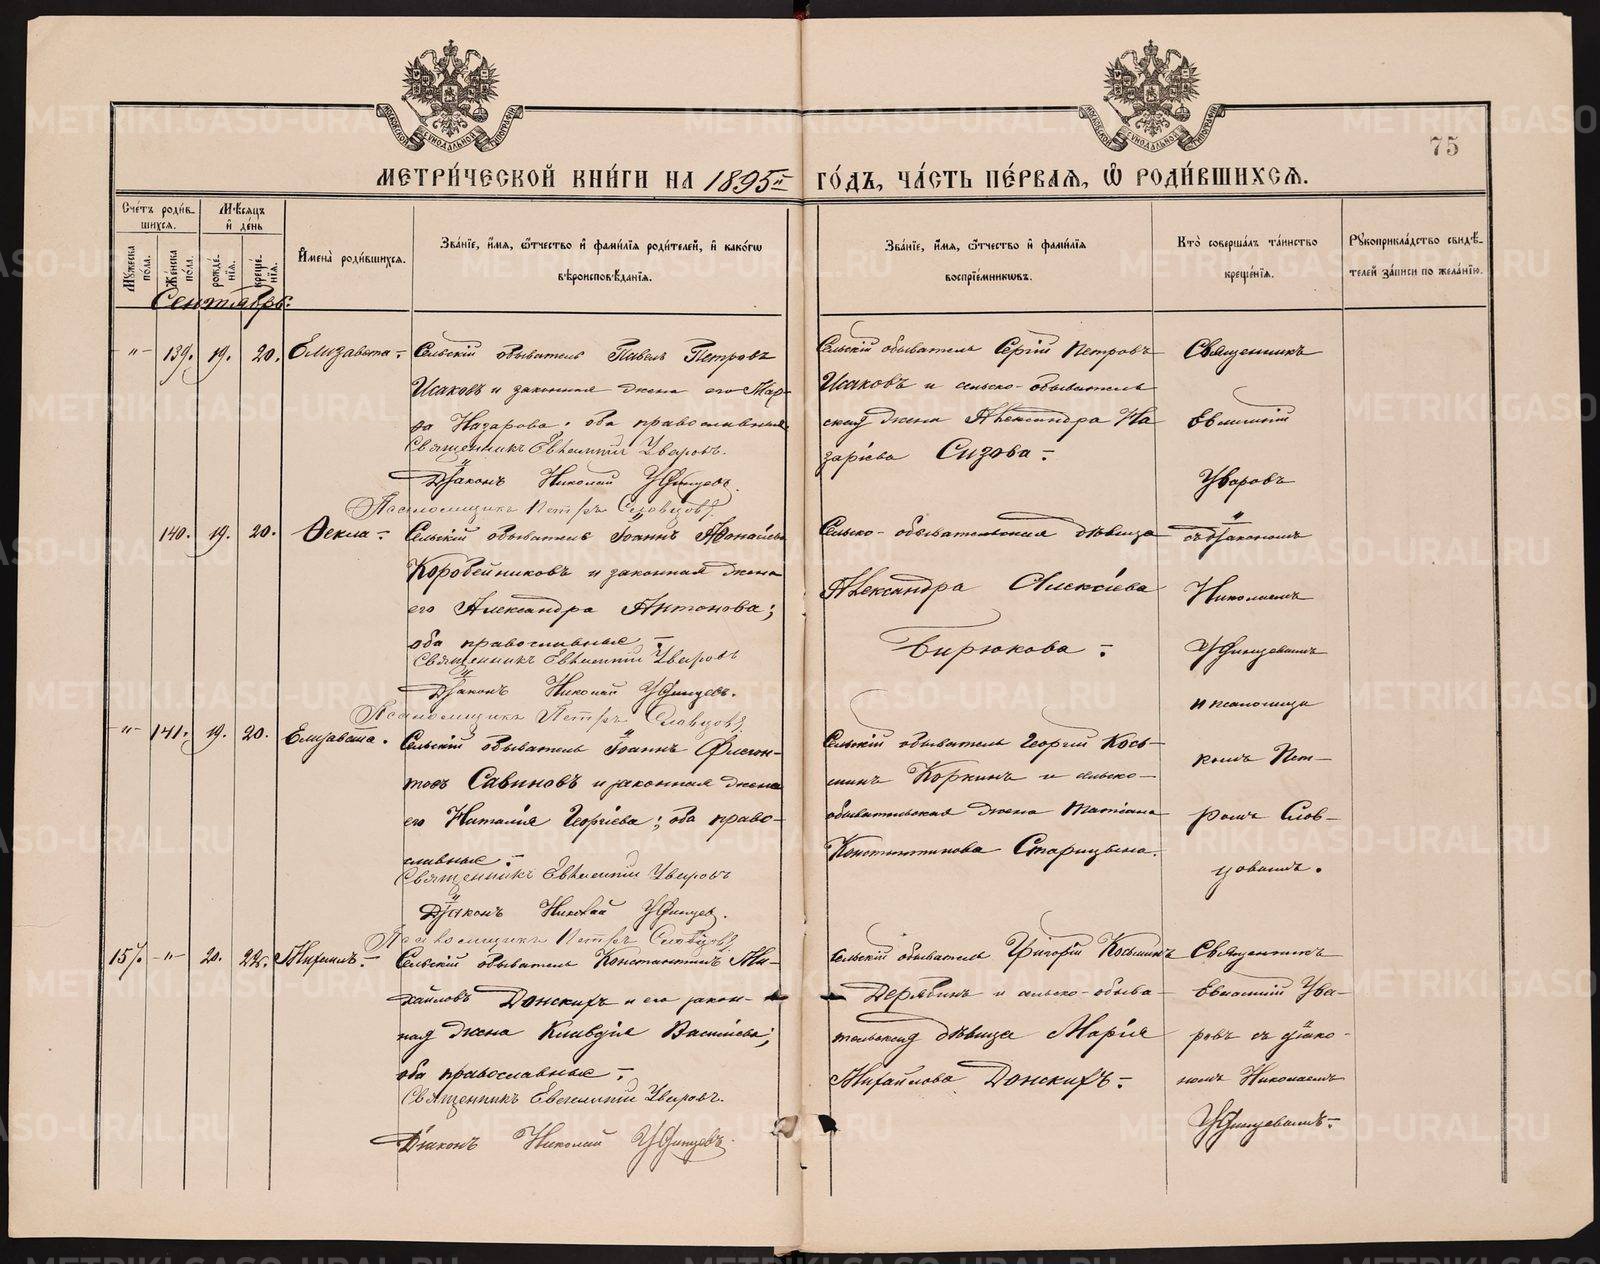 75
МЕТРИ́ЧЕСКОЙ КНИ́ГИ НА 1895й ГО́ДЪ, ЧА́СТЬ ПЕ́РВАѦ, Ѽ РОДИ́ВШИХСѦ.
Сче́тъ роди́вшихсѧ.
Мꙋ́жеска по́ла.
Же́нска по́ла.
Мѣ́сѧцъ и҆ де́нь
рожде́нїѧ.
креще́нїѧ.
И҆мена̀ роди́вшихсѧ.
Зва́нїе, и҆́мѧ, ѻ҆́тчество и҆ фами́лїѧ роди́телей, и҆ како́гѡ
вѣроисповѣ́данїѧ.
Зва́нїе, и҆́мѧ, ѻ҆́тчество и҆ фами́лїѧ
воспрїе́мникѡвъ.
Кто̀ соверша́лъ та́инство
креще́нїѧ.
Рꙋкоприкла́дство свидѣ́-
телей за́писи по жела́нїю.
Сентябрь.
-„- 139. 19. 20. Елизавета.-
Сельскій обыватель Павелъ Петровъ
Исаковъ и законная жена его Мар-
ѳа Назарова. оба православные
Священникъ Евѳимій Уваровъ.
Діаконъ Николай Уѳинцевъ.
Псаломщикъ Петръ Словцовъ.
Сельскій обыватель Сергій Петровъ
Исаковъ и сельско-обыватель
ская жена Александра На
зарієва Сизова.-
Священникъ
Евѳимій
Уваровъ
съ Діакономъ
Николаемъ
Уѳинцевымъ
и псаломщи
комъ Пет-
ромъ Слов-
цовымъ.
140. 19. 20. Ѳекла.-
Сельскій обыватель Іоаннъ Аѳанасіевъ
Коробейниковъ и законная жена
его Александра Антонова;
оба православные.-
Священникъ Евѳимій Уваровъ
Діаконъ Николай Уѳинцевъ.
Псаломщикъ Петръ Словцовъ.
Сельско-обывательская дѣвица
Александра Алексіева
Бирюкова.-
-„- 141. 19. 20. Елизавета.
Сельскій обыватель Іоаннъ Флегон-
товъ Савиновъ и законная жена
его Наталія Георгіева; оба право-
славные.-
Священникъ Евѳимій Уваровъ
Діаконъ Николай Уѳинцев.
Псаломщикъ Петръ Словцовъ.
Сельскій обыватель Георгій Кось-
минъ Коркинъ и сельско-
обывательская жена Татіана
Константинова Старицына.
157. -„- 20. 22. Михаилъ.-
Сельскій обыватель Константинъ Ми-
хайловъ Донскихъ и его закон-
ная жена Клавдія Васильева;
оба православные.-
Священникъ Евѳимій Уваровъ.
Діаконъ Николай Уѳинцевъ.
Сельскій обыватель Григорій Косьминъ
Дерябинъ и сельско-обыва-
тельская дѣвица Марія
Михайлова Донскихъ.-
Священникъ
Евѳимій Ува-
ровъ съ діако-
номъ Николаемъ
Уѳинцевымъ.-
METRIKI.GASO-URAL.RU